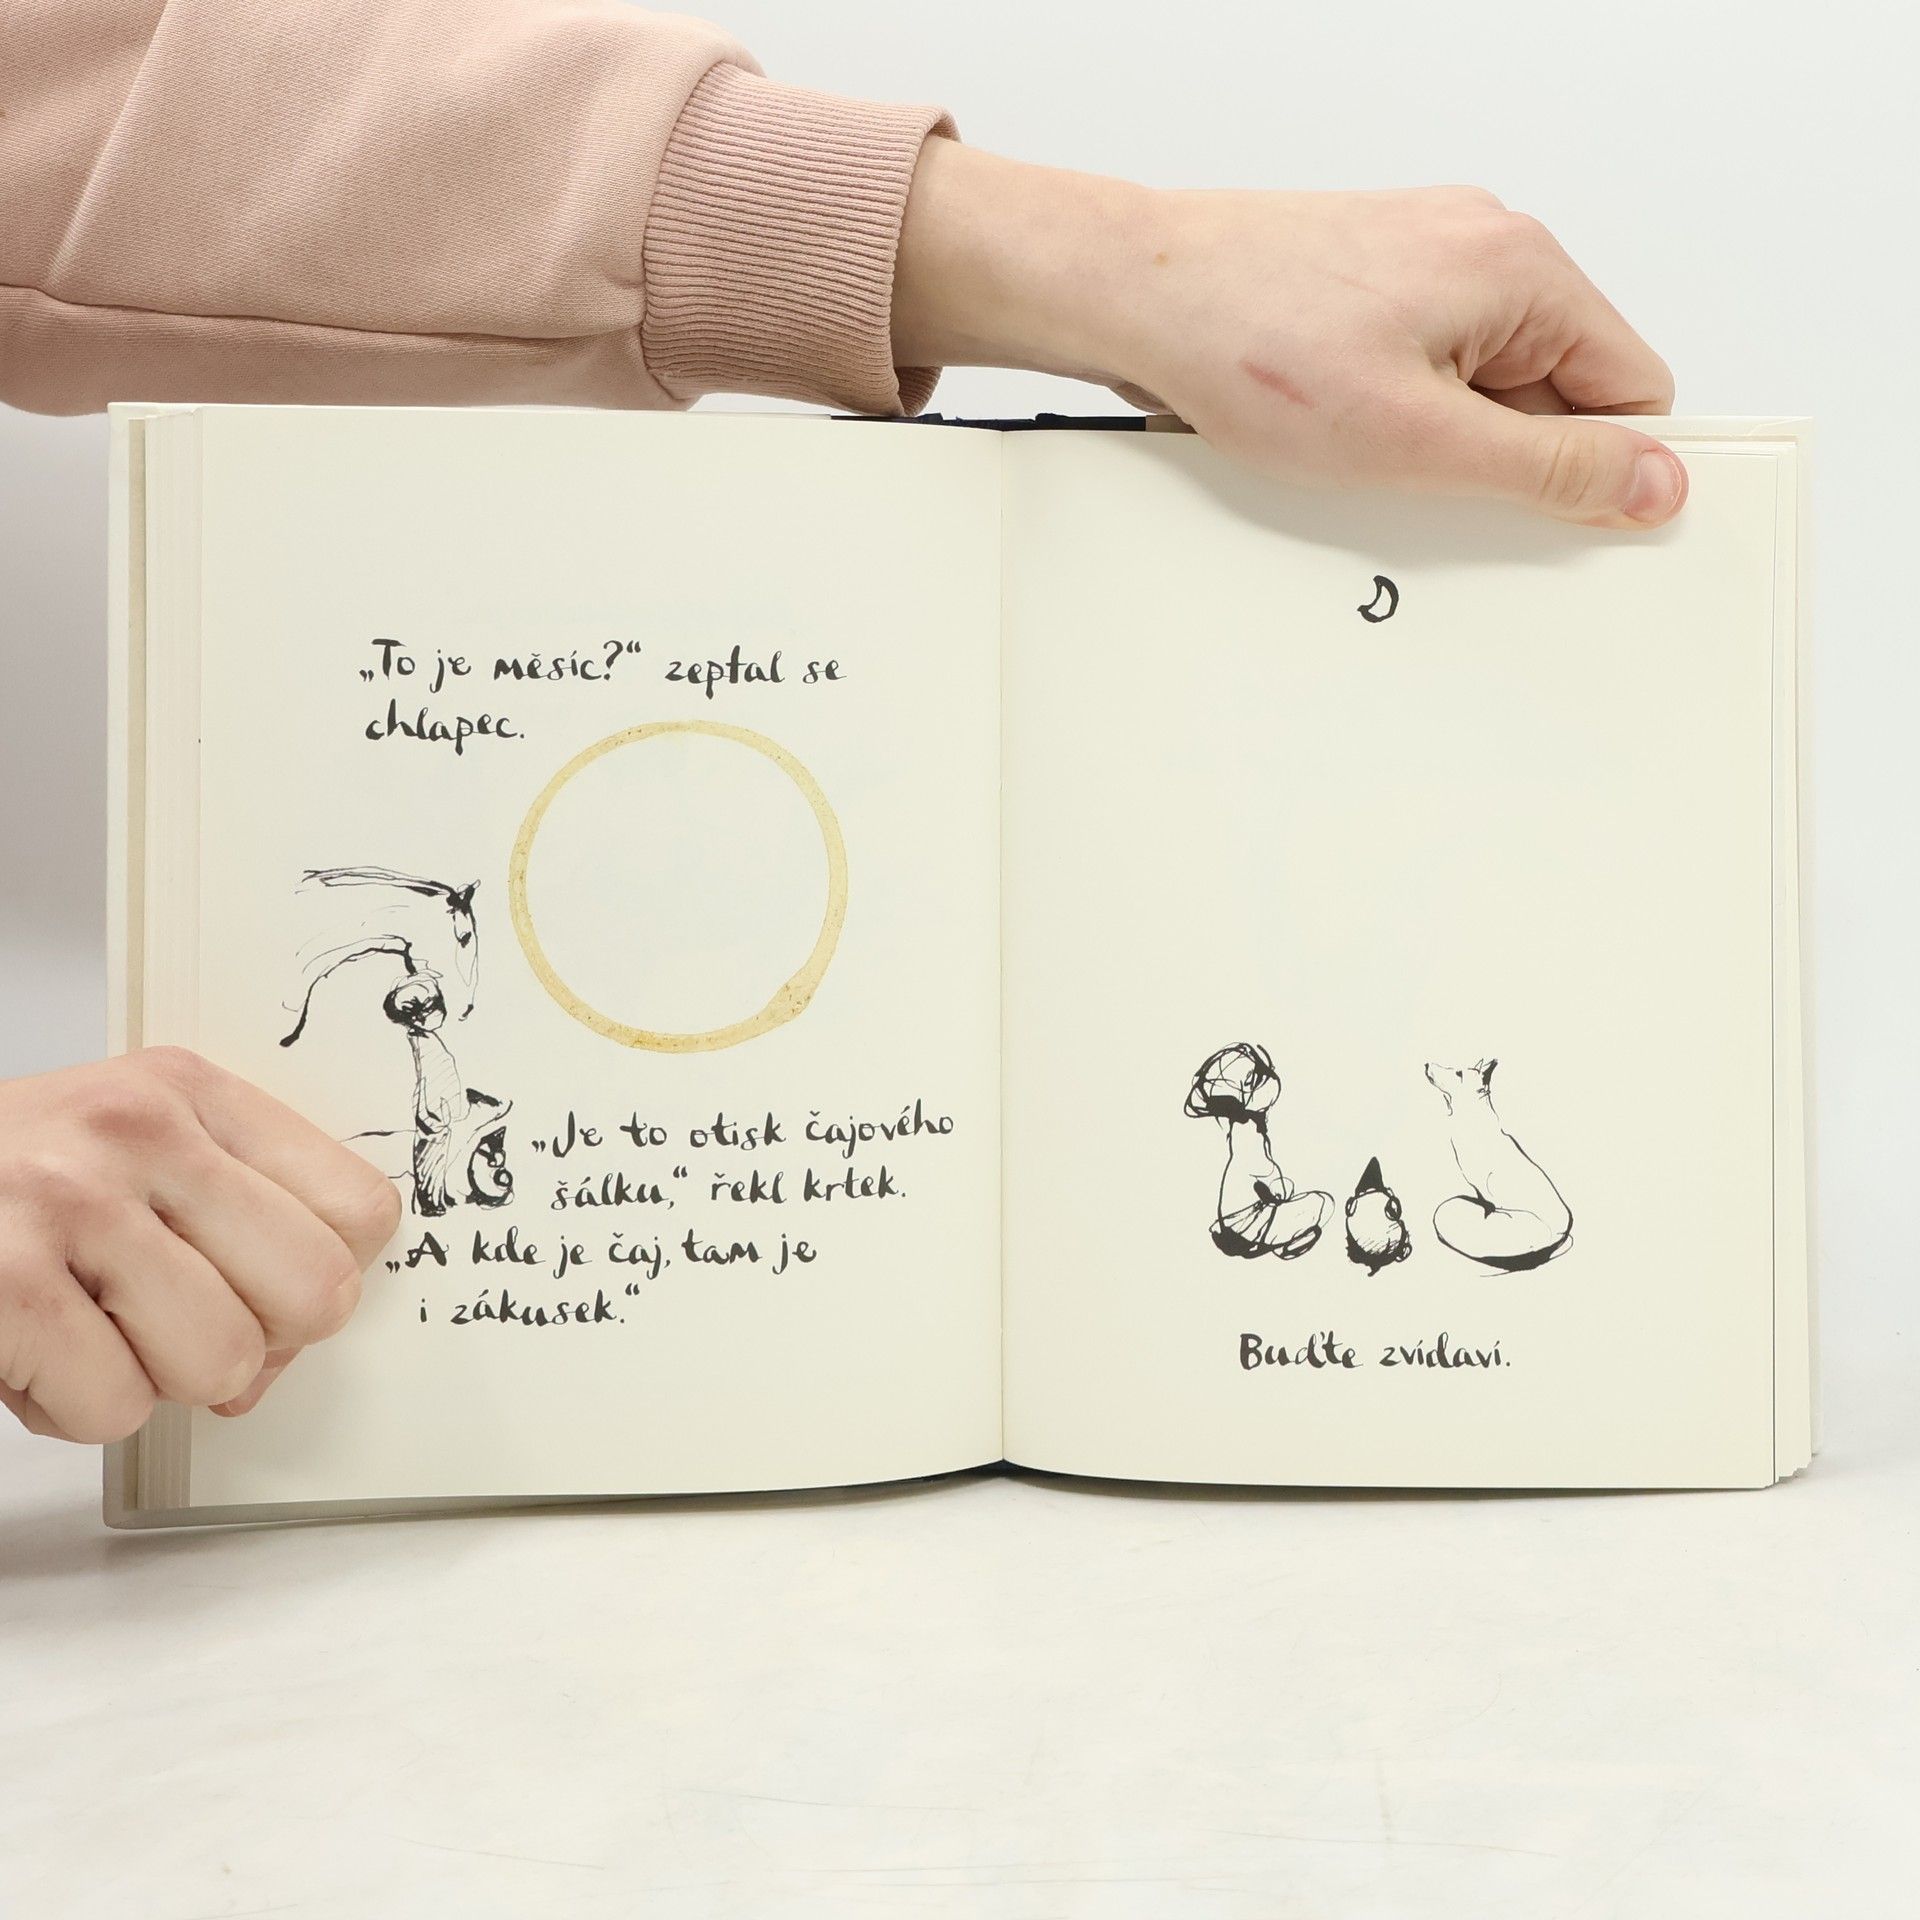 „To je měsíc?“ zeptal se
chlapec.
„Je to otisk čajového
šálku,“ řekl krtek.
„A kde je čaj, tam je
i zákusek.“
Buďte zvídaví.